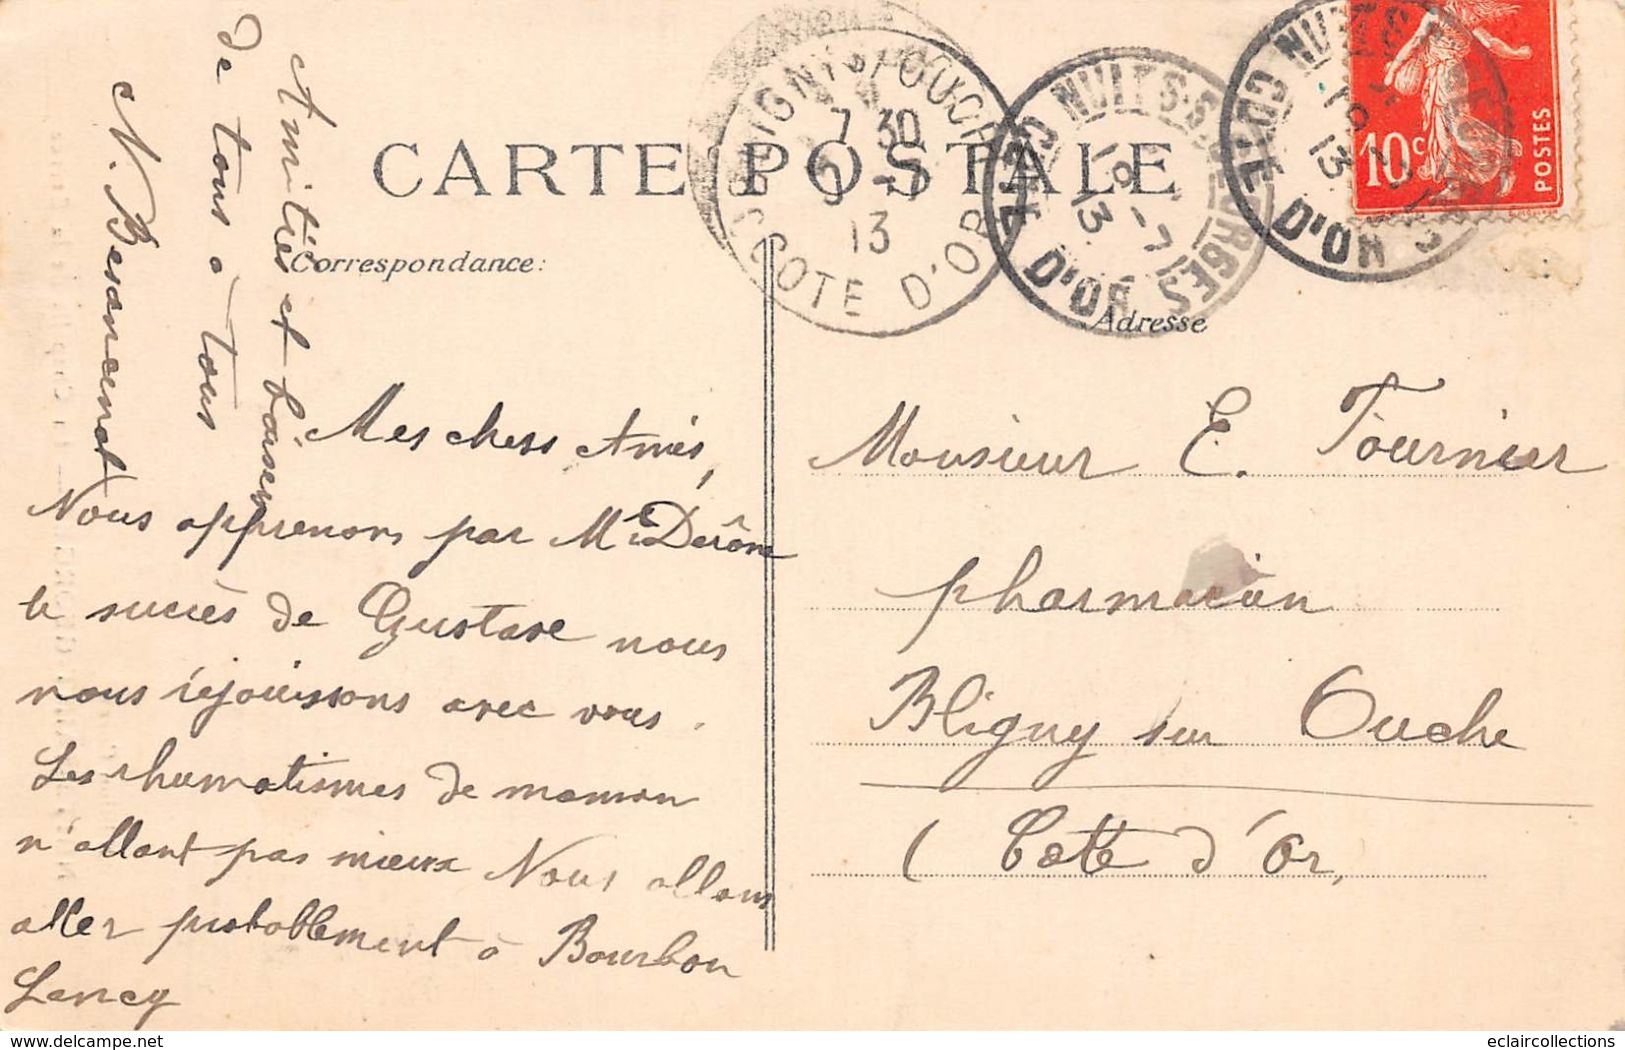 CARTE POSTALE
Correspondance:
Adresse
BLIGNY-S-OUCHE
7 30
13
COTE D'OR
NUITS-S-GEORGES
19 -7
13
COTE D'OR
NUITS-S-GEORGES
19 -7
13
COTE D'OR
10c
POSTES
Mes chers Amis,
Nous apprenons par Mr Derône
le succès de Gustave nous
nous réjouissons avec vous.
Les rhumatismes de maman
n'allant pas mieux Nous allons
aller probablement à Bourbon
Lancy
Amitiés et baisers
de tous à tous
N. Besancenot
Monsieur E. Tournier
pharmacien
Bligny sur Ouche
( Côte d'Or,
www.delcampe.net
eclaircollections